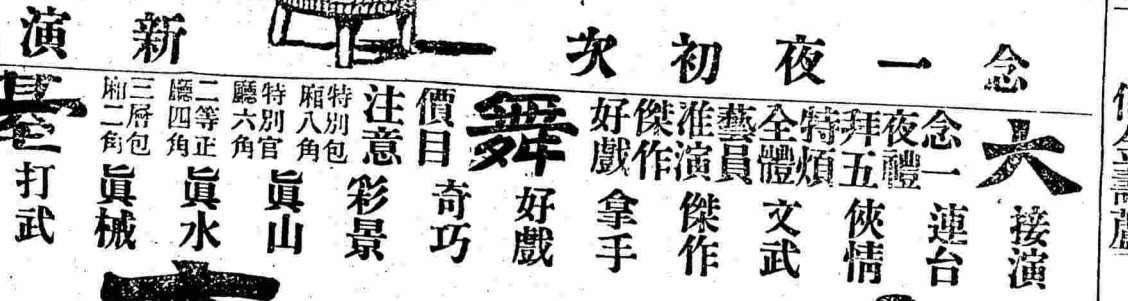 念一夜初次 新演
六
念一
夜禮
拜五
特煩
全體
藝員
准演
傑作
好戲
舞
價目
注意
特別包
廂八角
特別官
廳六角
二等正
廳四角
三層包
廂二角
臺
接演
連台
俠情
文武
傑作
拿手
好戲
奇巧
彩景
眞山
眞水
眞械
打武